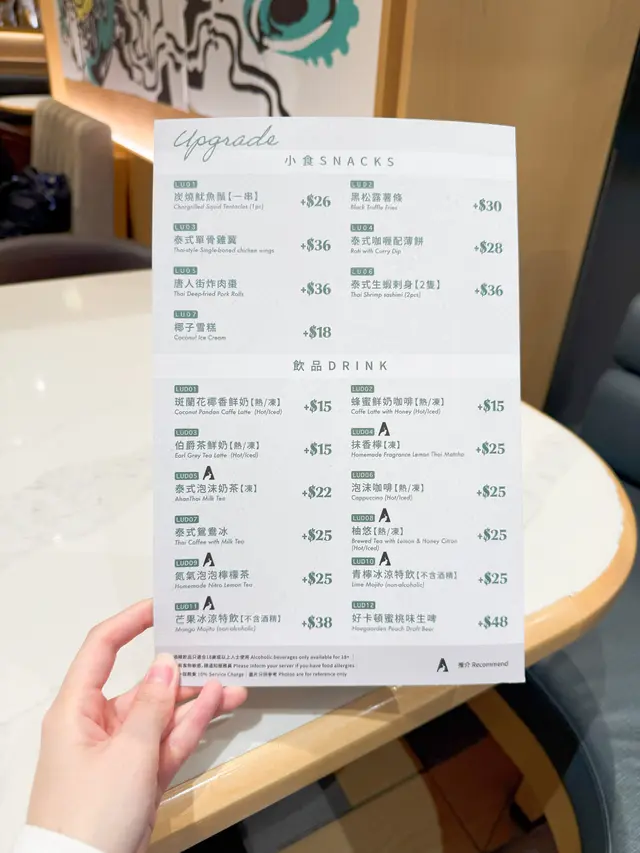 Upgrade
小食SNACKS
LU01
炭燒魷魚鬚【一串】
Chargrilled Squid Tentacles (1pc)
+$26
LU02
黑松露薯條
Black Truffle Fries
+$30
LU03
泰式單骨雞翼
Thai-style Single-boned chicken wings
+$36
LU04
泰式咖喱配薄餅
Roti with Curry Dip
+$28
LU05
唐人街炸肉棗
Thai Deep-fried Pork Rolls
+$36
LU06
泰式生蝦刺身【2隻】
Thai Shrimp sashimi (2pcs)
+$36
LU07
椰子雪糕
Coconut Ice Cream
+$18
飲品DRINK
LUD01
斑蘭花椰香鮮奶【熱/凍】
Coconut Pandan Caffe Latte (Hot/Iced)
+$15
LUD02
蜂蜜鮮奶咖啡【熱/凍】
Caffe Latte with Honey (Hot/Iced)
+$15
LUD03
伯爵茶鮮奶【熱/凍】
Earl Grey Tea Latte (Hot/Iced)
+$15
LUD04
抹香檸【凍】
Homemade Fragrance Lemon Thai Matcha
+$25
LUD05
泰式泡沫奶茶【凍】
AhanThai Milk Tea
+$22
LUD06
泡沫咖啡【熱/凍】
Cappuccino (Hot/Iced)
+$25
LUD07
泰式鴛鴦冰
Thai Coffee with Milk Tea
+$25
LUD08
柚悠【熱/凍】
Brewed Tea with Lemon & Honey Citron
(Hot/Iced)
+$25
LUD09
氮氣泡泡檸檬茶
Homemade Nitro Lemon Tea
+$25
LUD10
青檸冰涼特飲【不含酒精】
Lime Mojito (non-alcoholic)
+$25
LUD11
芒果冰涼特飲【不含酒精】
Mango Mojito (non-alcoholic)
+$38
LUD12
好卡頓蜜桃味生啤
Hoegaarden Peach Draft Beer
+$48
精飲品只適合18歲或以上人士使用 Alcoholic beverages only available for 18+
食物敏感，請通知服務員 Please inform your server if you have food allergies
10% Service Charge | 圖片只供參考 Photos are for reference only
推介 Recommend